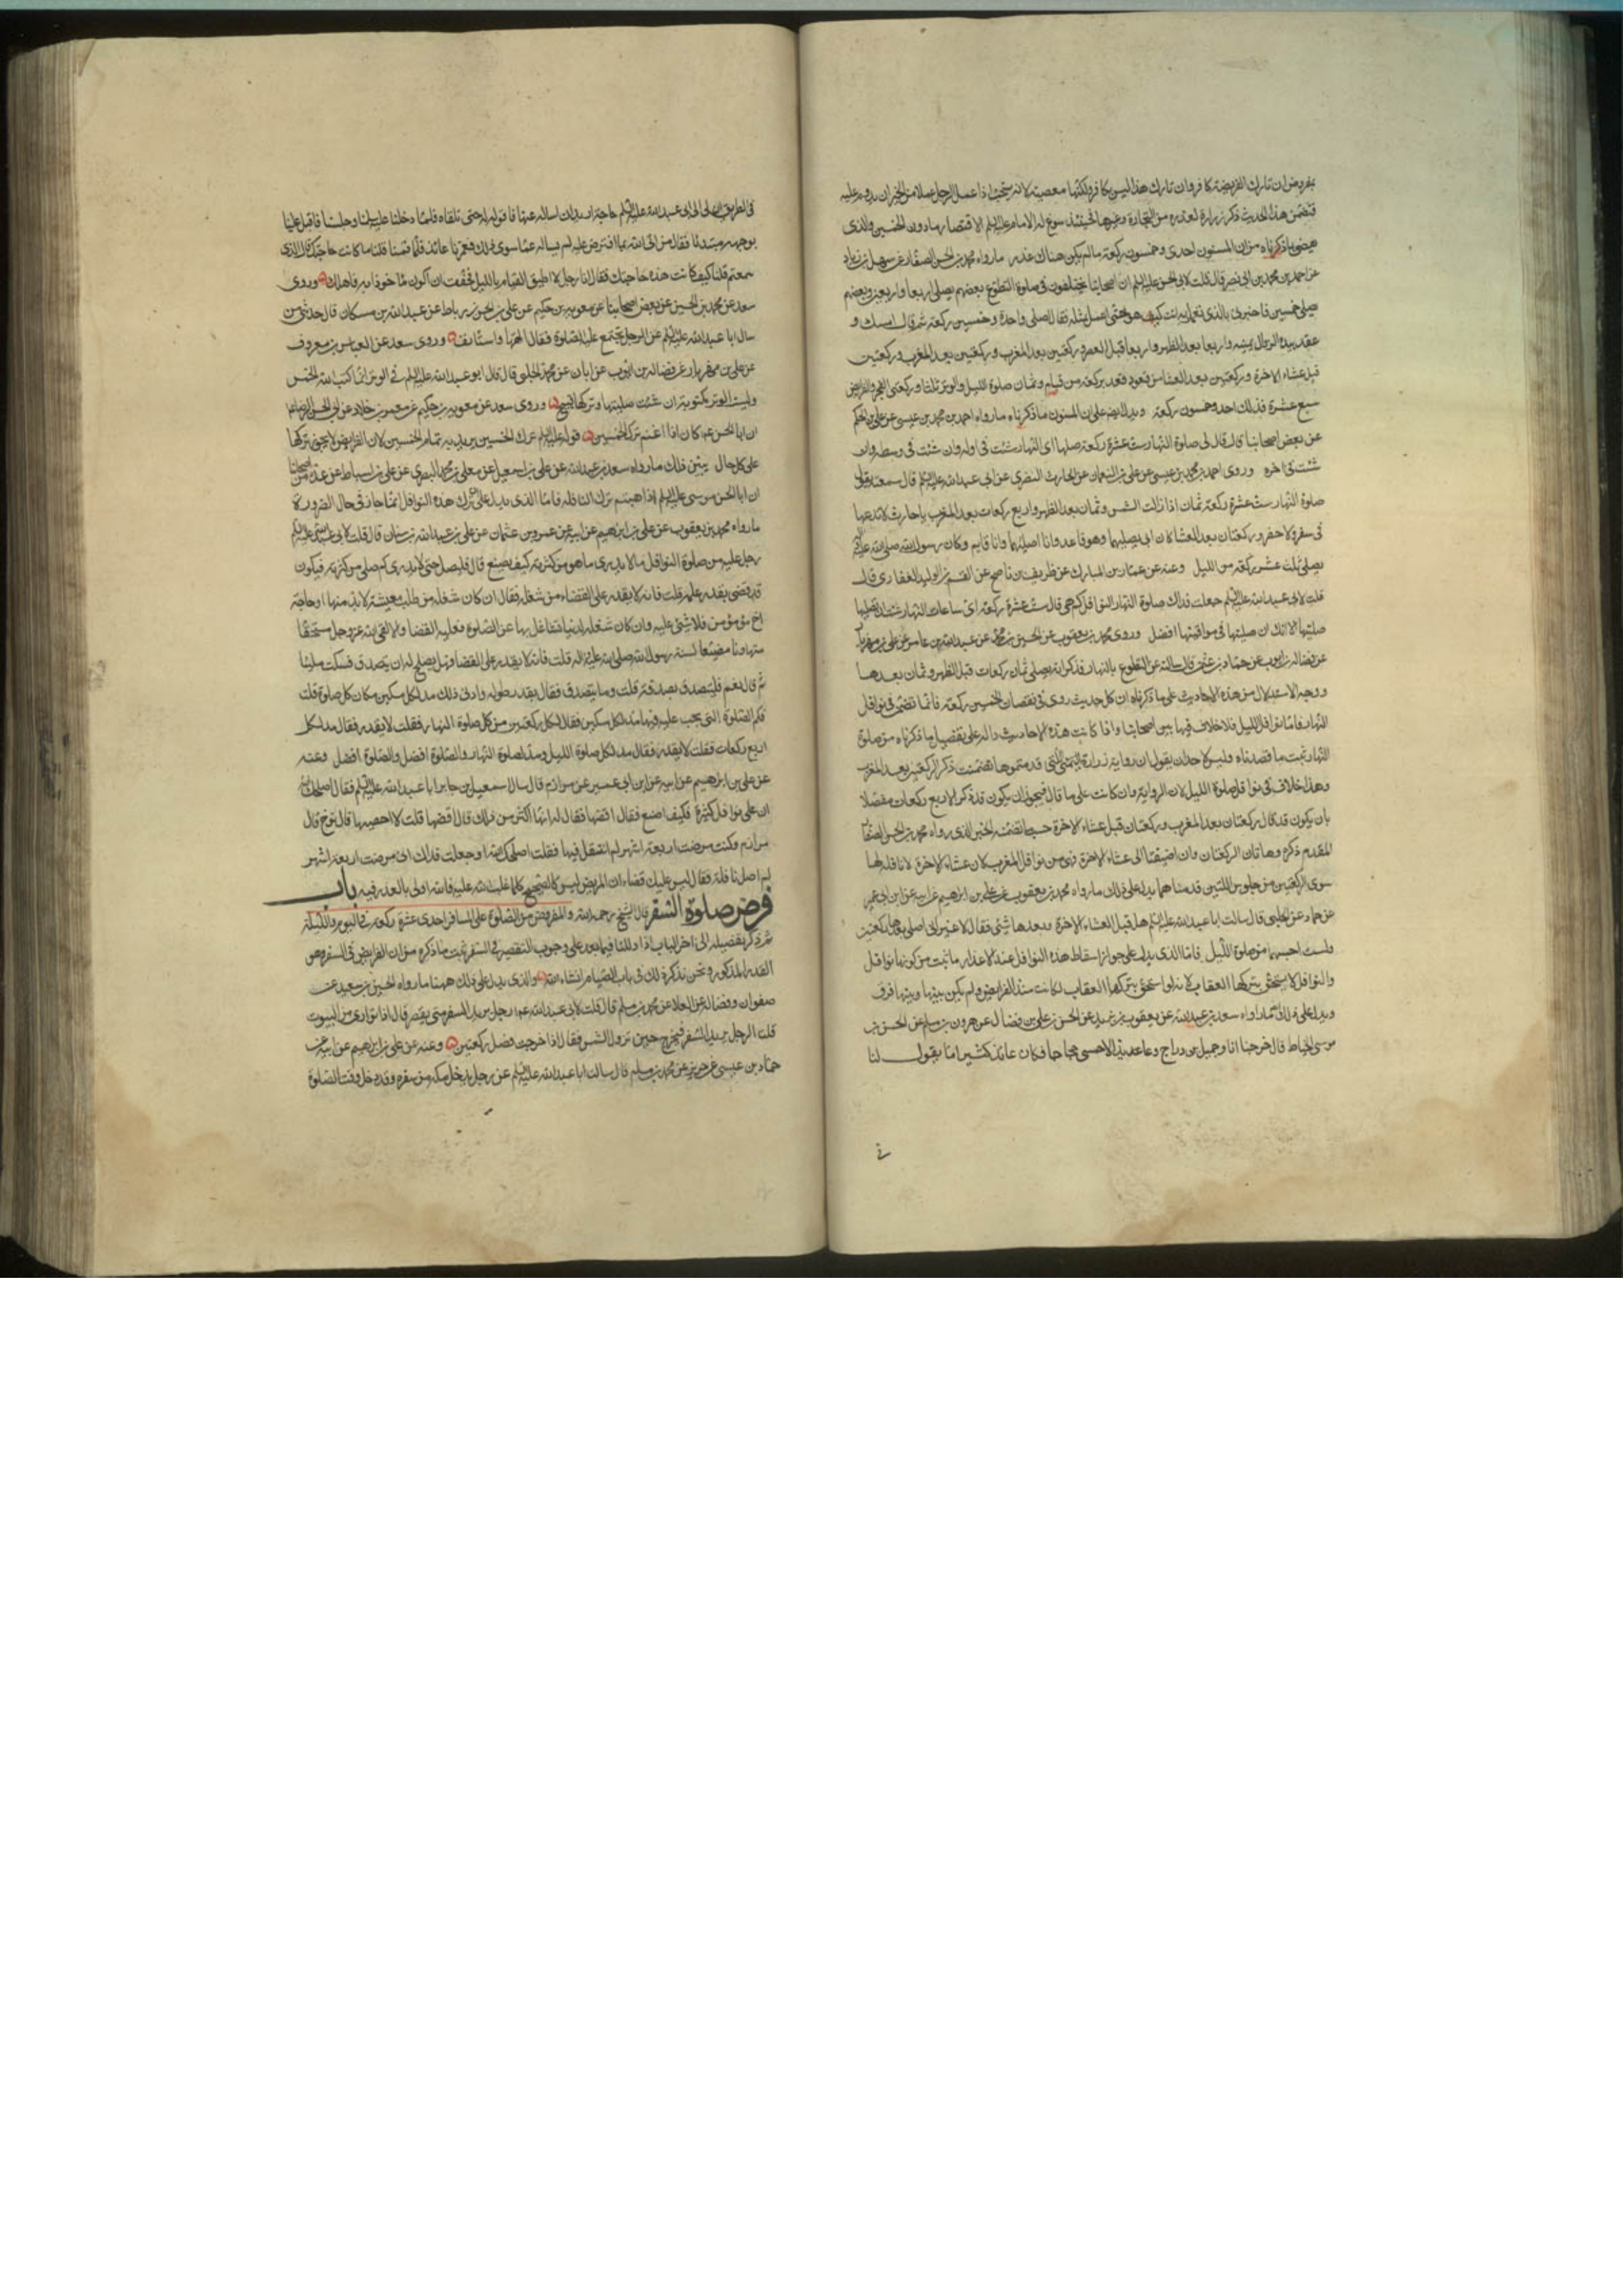 بمفروض ان تارك الفريضة كافر وان تارك هذا ليس بكافر ولكنها معصية لانه يستحب اذا عمل الرجل عملا من الخير ان يدوم عليه
فتضمن هذا الحديث ذكر زرارة لعذره من التجارة وغيرها فحينئذ سوغ له الامام عليه السلم الاقتصار بما دون الخمسين والذى
يقضى بما ذكرناه من ان المسنون احدى وخمسون ركعة ما لم يكن هناك عذر ما رواه محمد بن الحسن الصفار عن سهل بن زياد
عن احمد بن محمد بن ابى نصر قال قلت لابى الحسن عليه السلم ان اصحابنا يختلفون فى صلوة التطوع بعضهم يصلى اربعا واربعين وبعضهم
يصلى خمسين فاخبرنى بالذى تعمل به انت كيف هو حتى اعمل بمثله فقال اصلى واحدة وخمسين ركعة ثم قال امسك و
عقد بيده الزوال ثمنيه واربعا بعد الظهر واربعا قبل العصر وركعتين بعد المغرب وركعتين بعد المغرب وركعتين
قبل عشاء الاخرة وركعتين بعد العشا من قعود تعد بركعة من قيام وثمان صلوة الليل والوتر ثلثا وركعتى الفجر والفرايض
سبع عشرة فذلك احد وخمسون ركعة ويدل ايضا على ان المسنون ما ذكرناه ما رواه احمد بن محمد بن عيسى عن على بن الحكم
عن بعض اصحابنا قال قال لى صلوة النهار ست عشرة ركعة صلها اى النهار شئت فى اوله وان شئت فى وسطه وان
شئت فى اخره وروى احمد بن محمد بن عيسى عن على بن النعمان عن الحارث النضرى عن ابى عبد الله عليه السلم قال سمعته يقول
صلوة النهار ست عشرة ركعة ثمان اذا زالت الشمس وثمان بعد الظهر واربع ركعات بعد المغرب يا حارث لا تدعها
فى سفر ولا حضر وركعتان بعد العشا كان ابى يصليهما وهو قاعد وانا اصليهما وانا قايم وكان رسول الله صلى الله عليه واله
يصلى ثلث عشر ركعة من الليل وعنه عن عمار بن المبارك عن ظريف بن ناصح عن القسم بن الوليد الغفارى قال
قلت لابى عبد الله عليه السلم جعلت فداك صلوة النهار النوافل كم هى قال ست عشرة ركعة اى ساعات النهار شئت ان تصليها
صليتها الا انك ان صليتها فى مواقيتها افضل وروى محمد بن يعقوب عن الحسين بن محمد عن عبد الله بن عامر عن على بن مهزيار
عن فضالة بن ايوب عن حماد بن عثمن قال سالته عن التطوع بالنهار فذكر انه يصلى ثمان ركعات قبل الظهر وثمان بعدها
ووجه الاستدلال من هذه الاحاديث على ما ذكرناه ان كل حديث روى فى نقصان الخمسين ركعة فانما تضمن فى نوافل
النهار فاما نوافل الليل فلا خلاف فيها بين اصحابنا واذا كانت هذه الاحاديث دالة على تفصيل ما ذكرناه من صلوة
النهار ثبت ما قصدناه وليس لاحد ان يقول ان رواية زرارة التى قدمتموها تضمنت ذكر الركعتين بعد المغرب
وهذا خلاف فى نوافل صلوة الليل لان الرواية وان كانت على ما قال فيجوز ان يكون قد ذكر الاربع ركعات مفصلا
بان يكون قد قال ركعتان بعد المغرب وركعتان قبل عشاء الاخرة حسب ما تضمنه الخبر الذى رواه محمد بن الحسن الصفار
المقدم ذكره وهاتان الركعتان وان اضيفتا الى عشاء الاخرة فهى من نوافل المغرب لان عشاء الاخرة لا نافلة لها
سوى الركعتين من جلوس اللتين قدمناهما يدل على ذلك ما رواه محمد بن يعقوب عن على بن ابرهيم عن ابيه عن ابن ابى عمير
عن حماد عن الحلبى قال سالت ابا عبد الله عليه السلم هل قبل العشاء الاخرة وبعدها شئ فقال لا غير انى اصلى بعدها ركعتين
ولست احسبهما من صلوة الليل فاما الذى يدل على جواز اسقاط هذه النوافل عند الاعذار ما ثبت من كونها نوافل
والنوافل لا يستحق بتركها العقاب لانه لو استحق بتركها العقاب لكانت مثل الفرايض ولم يكن بينها وبينها فرق
ويدل على ذلك ما رواه سعد بن عبد الله عن يعقوب بن يزيد عن الحسن بن على بن فضال عن هرون بن مسلم عن الحسن بن
موسى الحناط قال خرجنا انا وجميل بن دراج وعائذ الاحمسى حجاجا فكان عائذ كثيرا ما يقول لنا
فى
فى الطريق ان لى الى ابى عبد الله عليه السلم حاجة اريد ان اساله عنها فاقول له حتى نلقاه فلما دخلنا عليه سلمنا وجلسنا فاقبل علينا
بوجهه مبتدئا فقال من اتى الله بما افترض عليه لم يساله عما سوى ذلك فغمزنا عائذ فلما قمنا قلنا ما كانت حاجتك قال الذى
سمعتم قلنا كيف كانت هذه حاجتك فقال انا رجل لا اطيق القيام بالليل فخفت ان اكون ماخوذا به فاهلك وروى
سعد عن محمد بن الحسين عن بعض اصحابنا عن معوية بن حكيم عن على بن الحسن بن رباط عن عبد الله بن مسكان قال حدثنى من
سال ابا عبد الله عليه السلم عن الرجل يجتمع عليه الصلوة فقال القها واستانف وروى سعد عن العباس بن معروف
عن على بن مهزيار عن فضالة بن ايوب عن ابان عن محمد الحلبى قال قال ابو عبد الله عليه السلم فى الوتر انما كتب الله الخمس
وليست الوتر مكتوبة ان شئت صليتها وتركها قبيح وروى سعد عن معوية بن حكيم عن معمر بن خلاد عن ابى الحسن الرضا عم
ان ابا الحسن عم كان اذا اغتم ترك الخمسين قوله عليه السلم ترك الخمسين يريد به تمام الخمسين لان الفرايض لا يجوز تركها
على كل حال يبين ذلك ما رواه سعد بن عبد الله عن على بن اسمعيل عن معلى بن محمد البصرى عن على بن اسباط عن عدة من اصحابنا
ان ابا الحسن موسى عليه السلم اذا اهتم ترك النافلة فاما الذى يدل على ان ترك هذه النوافل انما جاز فى حال الضرورة
ما رواه محمد بن يعقوب عن على بن ابرهيم عن ابيه عن عمرو بن عثمان عن على بن عبد الله بن سنان قال قلت لابى عبد الله عليه السلم
رجل عليه من صلوة النوافل ما لا يدرى ما هو من كثرته كيف يصنع قال فليصل حتى لا يدرى كم صلى من كثرته فيكون
قد قضى بقدر علمه قلت فانه لا يقدر على القضاء من شغله فقال ان كان شغله من طلب معيشة لا بد منها او حاجة
اخ مؤمن فلا شئ عليه وان كان شغله لدنيا فتشاغل بها عن الصلوة فعليه القضا والا لقى الله عز وجل مستخفا
متهاونا مضيعا لسنة رسول الله صلى الله عليه واله قلت فانه لا يقدر على القضا فهل يصلح له ان يتصدق فسكت مليا
ثم قال نعم فليتصدق بصدقة قلت وما يتصدق فقال بقدر طوله وادنى ذلك مد لكل مسكين مكان كل صلوة قلت
فكم الصلوة التى يجب عليه فيها مد لكل مسكين فقال لكل ركعتين من كل صلوة النهار فقلت لا يقدر فقال مد لكل
اربع ركعات فقلت لا يقدر فقال مد لكل صلوة الليل ومد لصلوة النهار والصلوة افضل والصلوة افضل وعنه
عن على بن ابرهيم عن ابيه عن ابن ابى عمير عن مرازم قال سال سمعيل بن جابر ابا عبد الله عليه السلم فقال اصلحك الله
ان على نوافل كثيرة فكيف اصنع فقال اقضها فقال له انها اكثر من ذلك قال اقضها قلت لا احصيها قال توخ قال
مرازم وكنت مرضت اربعة اشهر لم اتنفل فيها فقلت اصلحك الله وجعلت فداك انى مرضت اربعة اشهر
لم اصل نافلة فقال ليس عليك قضاء ان المريض ليس كالصحيح كلما غلب الله عليه فالله اولى بالعذر فيه باب
فرض صلوة السفر قال الشيخ رحمه الله والمفروض من الصلوة على المسافر احدى عشرة ركعة فى اليوم والليلة
ثم ذكر تفصيله الى اخر الباب اذا دللنا فيما بعد على وجوب التقصير فى السفر ثبت ما ذكره من ان الفرايض فى السفر هو
القدر المذكور ونحن نذكر ذلك فى باب الصيام انشاء الله والذى يدل على ذلك ههنا ما رواه الحسين بن سعيد عن
صفوان وفضالة عن العلا عن محمد بن مسلم قال قلت لابى عبد الله عم رجل يريد السفر متى يقصر قال اذا توارى من البيوت
قلت الرجل يريد السفر فيخرج حين تزول الشمس فقال اذا خرجت فصل ركعتين وعنه عن على بن ابرهيم عن ابيه عن
حماد بن عيسى عن حريز عن محمد بن مسلم قال سالت ابا عبد الله عليه السلم عن رجل يدخل مكة من سفره وقد دخل وقت الصلوة